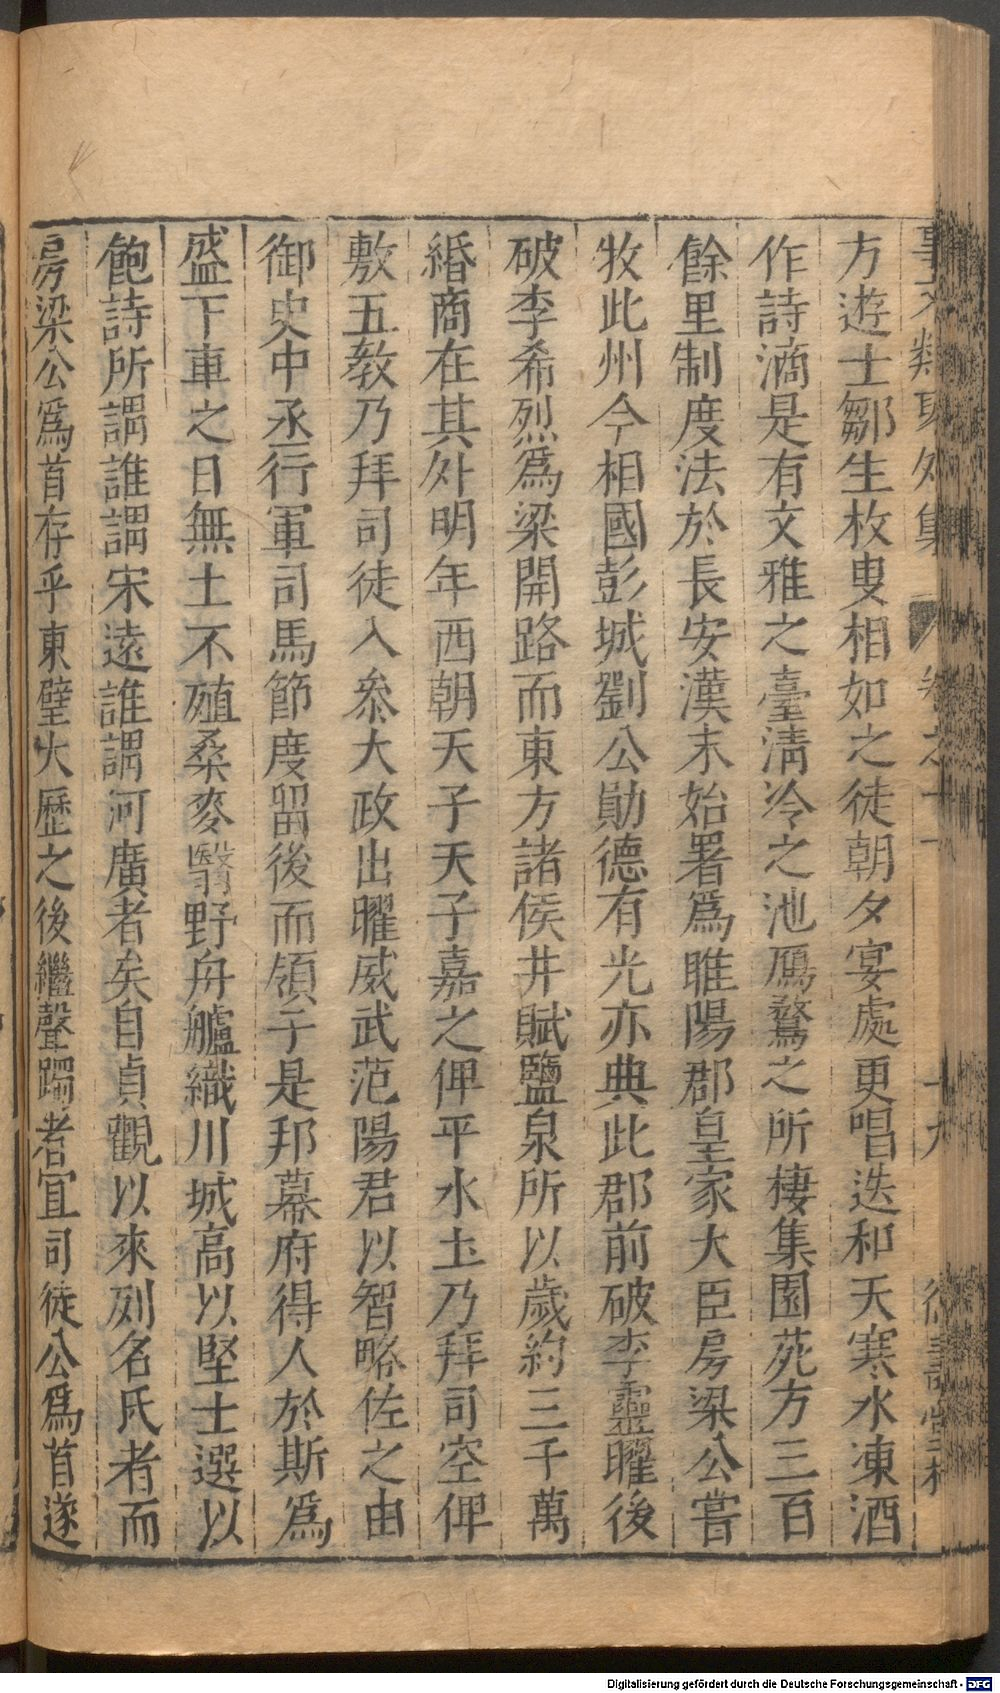 事文類聚外集 卷之十一 十九 德壽堂梓
方遊士鄒生枚叟相如之徒朝夕宴處更唱迭和天寒水凍酒
作詩滴是有文雅之臺清冷之池鴈鶩之所棲集園苑方三百
餘里制度法於長安漢末始署爲睢陽郡皇家大臣房梁公嘗
牧此州今相國彭城劉公勛德有光亦典此郡前破李靈曜後
破李希烈爲梁開路而東方諸侯井賦鹽泉所以歲約三千萬
緡商在其外明年西朝天子天子嘉之俾平水土乃拜司空俾
敷五教乃拜司徒入叅大政出曜威武范陽君以智略佐之由
御史中丞行軍司馬節度留後而領于是邦幕府得人於斯爲
盛下車之日無土不殖桑麥翳野舟艫織川城高以堅士選以
飽詩所謂誰謂宋遠誰謂河廣者矣自貞觀以來列名氏者而
房梁公爲首存乎東壁大歷之後繼聲躅者宜司徒公爲首遂
Digitalisierung gefördert durch die Deutsche Forschungsgemeinschaft - DFG